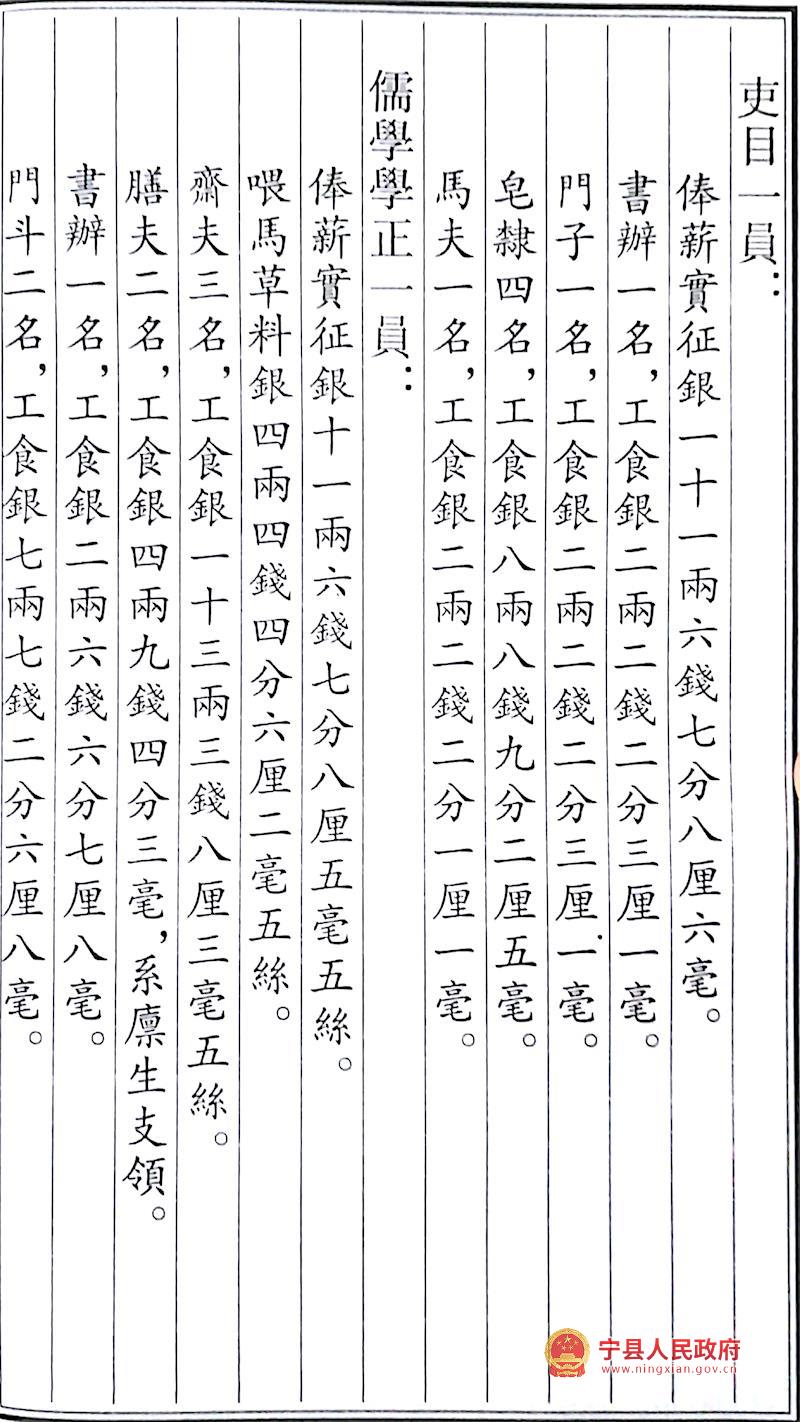 吏目一員：
俸薪實征銀一十一兩六錢七分八厘六毫。
書辦一名，工食銀二兩二錢二分三厘一毫。
門子一名，工食銀二兩二錢二分三厘一毫。
皂隸四名，工食銀八兩八錢九分二厘五毫。
馬夫一名，工食銀二兩二錢二分一厘一毫。
儒學學正一員：
俸薪實征銀十一兩六錢七分八厘五毫五絲。
喂馬草料銀四兩四錢四分六厘二毫五絲。
齋夫三名，工食銀一十三兩三錢八厘三毫五絲。
膳夫二名，工食銀四兩九錢四分三毫，系廩生支領。
書辦一名，工食銀二兩六錢六分七厘八毫。
門斗二名，工食銀七兩七錢二分六厘八毫。
宁县人民政府
www.ningxian.gov.cn